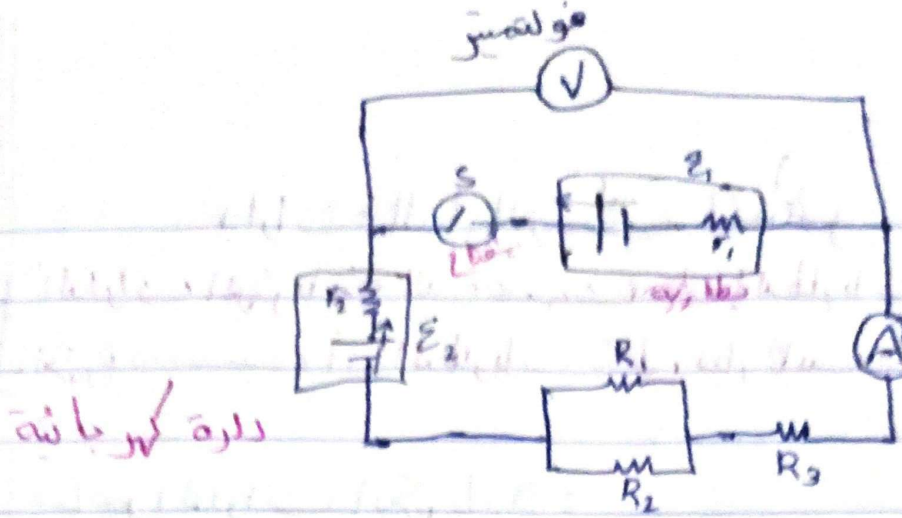 فولتميتر
V
S
ε₁
r₁
مفتاح
بطارية
r₂
ε₂
A
R₁
دارة كهربائية
R₂
R₃